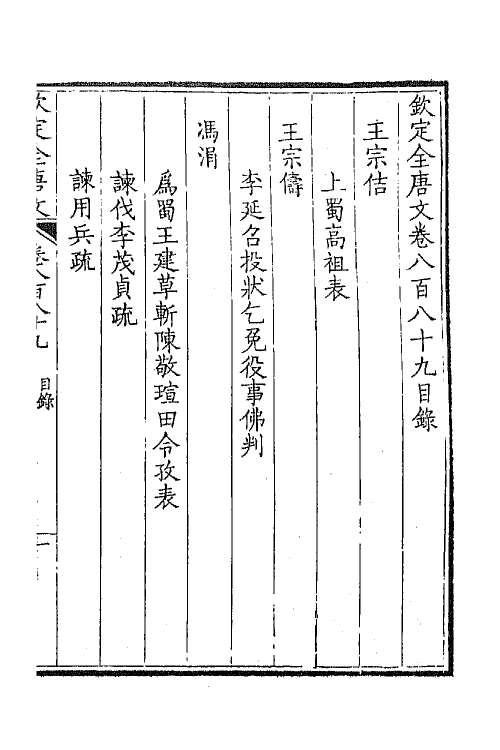 欽定全唐文卷八百八十九目錄
王宗佶
上蜀高祖表
王宗儔
李延召投狀乞免役事佛判
馮涓
爲蜀王建草斬陳敬瑄田令孜表
諫伐李茂貞疏
諫用兵疏
欽定全唐文 卷八百八十九 目錄 一